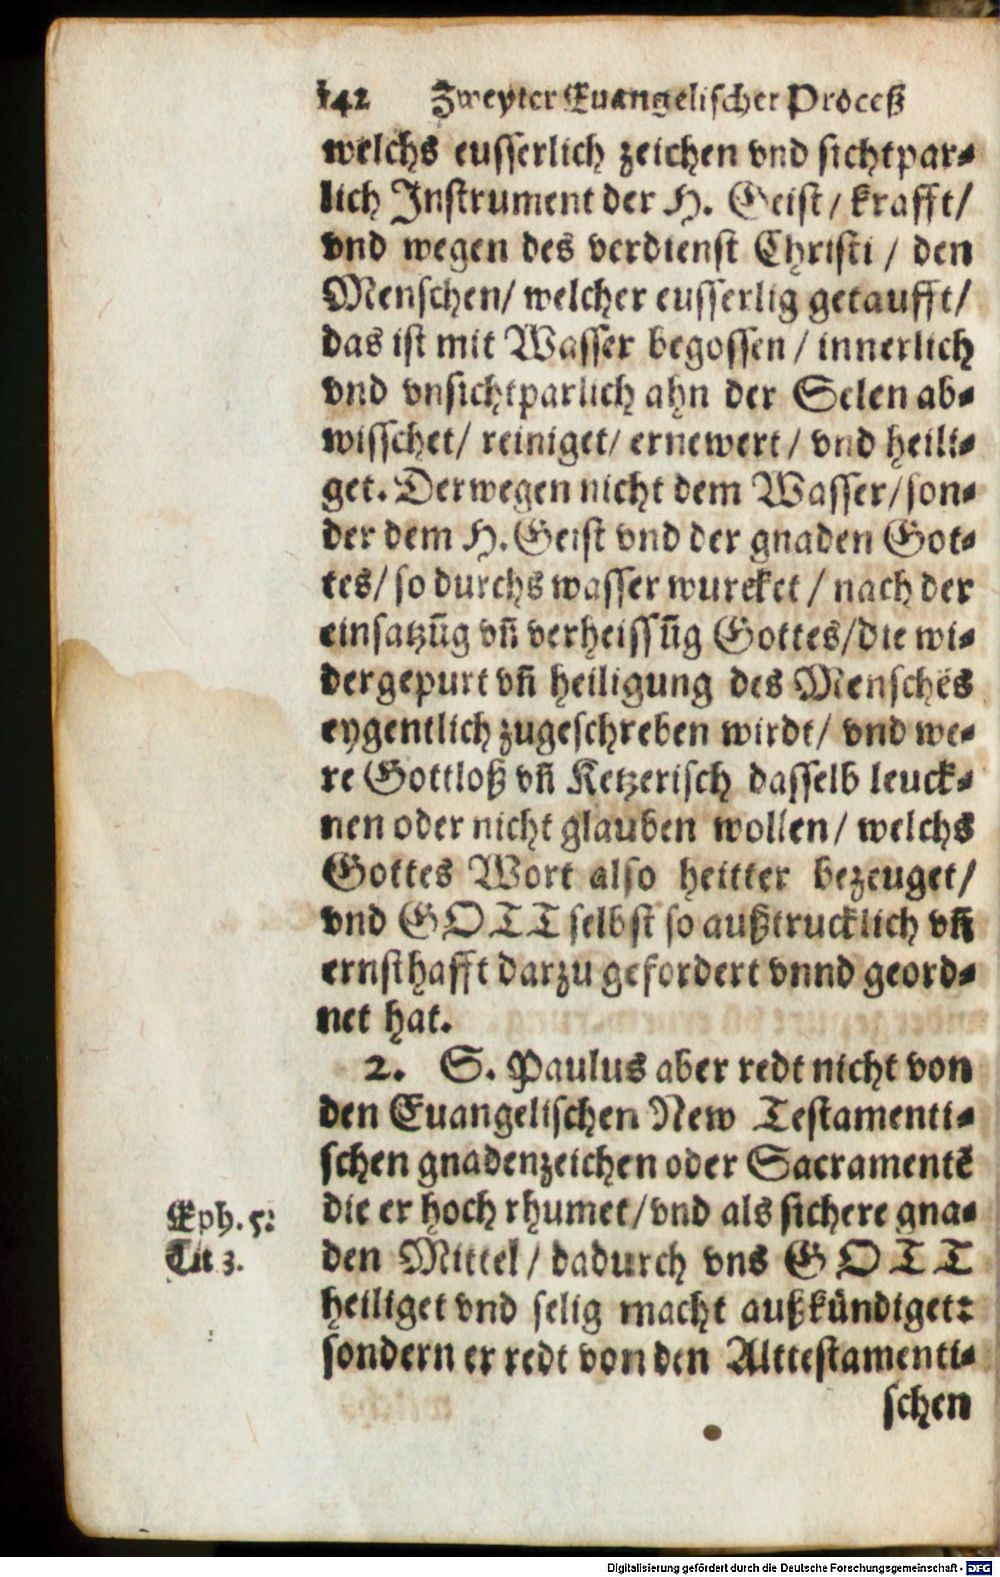 142 Zweyter Euangelischer Proceß
welchs eusserlich zeichen vnd sichtpar⸗
lich Instrument der H. Geist / krafft /
vnd wegen des verdienst Christi / den
Menschen / welcher eusserlig getaufft /
das ist mit Wasser begossen / innerlich
vnd vnsichtparlich ahn der Selen ab⸗
wisschet / reiniget / ernewert / vnd heili⸗
get. Derwegen nicht dem Wasser / son⸗
der dem H. Geist vnd der gnaden Got⸗
tes / so durchs wasser wurcket / nach der
einsatzūg vñ verheissūg Gottes / die wi⸗
dergepurt vñ heiligung des Menschēs
eygentlich zugeschreben wirdt / vnd we⸗
re Gottloß vñ Ketzerisch dasselb leuck⸗
nen oder nicht glauben wollen / welchs
Gottes Wort also heitter bezeuget /
vnd GOTT selbst so außtrucklich vñ
ernsthafft darzu gefordert vnnd geord⸗
net hat.
2. S. Paulus aber redt nicht von
den Euangelischen New Testamenti⸗
schen gnadenzeichen oder Sacramentē
Eph. 5: die er hoch rhumet / vnd als sichere gna⸗
Tit 3. den Mittel / dadurch vns GOTT
heiliget vnd selig macht außkündiget:
sondern er redt von den Alttestamenti⸗
schen
Digitalisierung gefördert durch die Deutsche Forschungsgemeinschaft - DFG